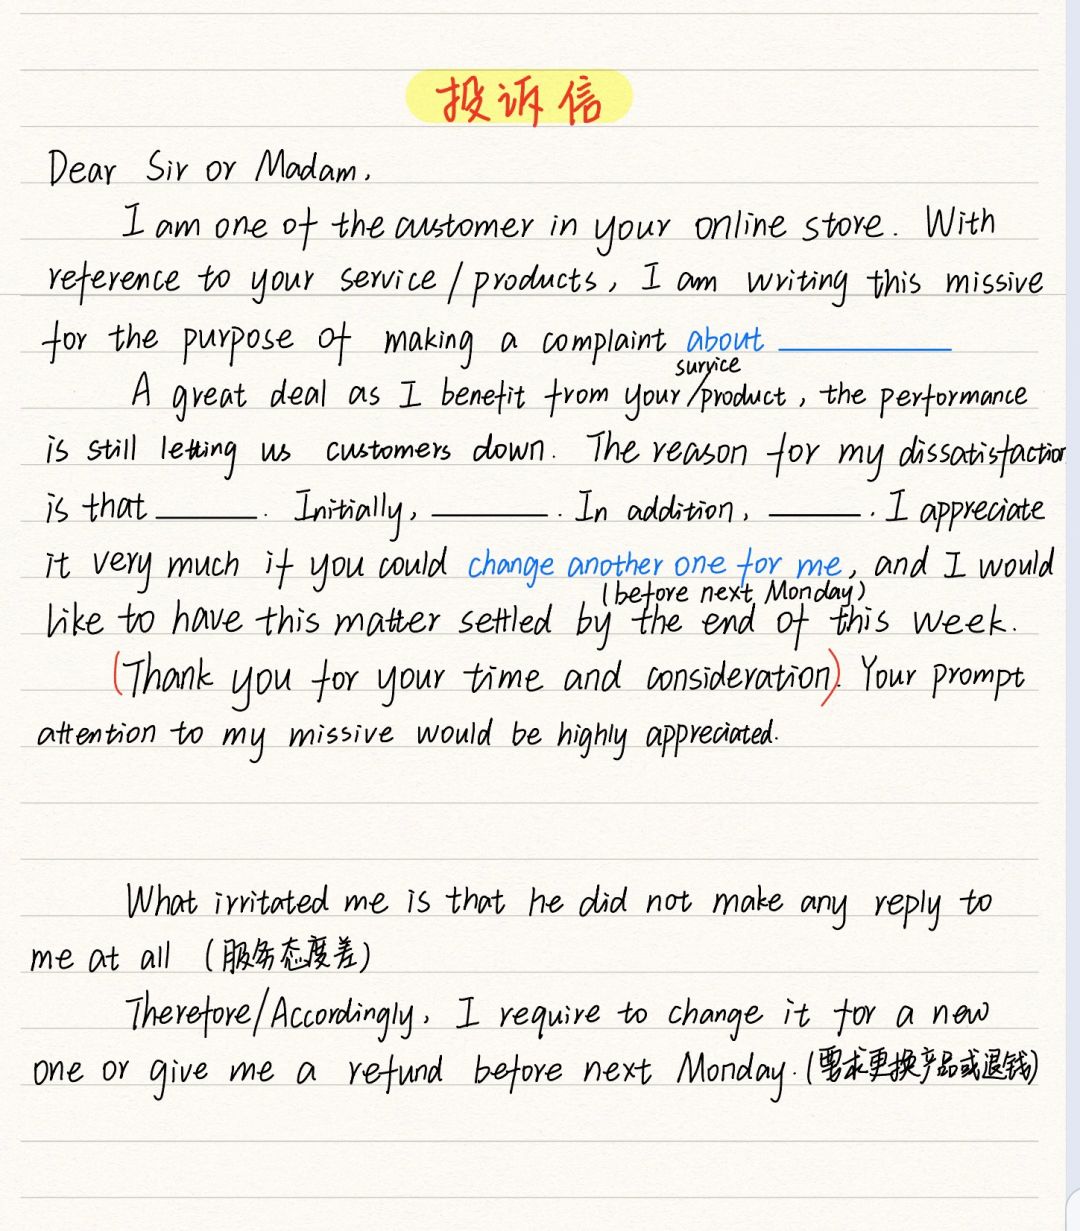 投诉信
Dear Sir or Madam,
I am one of the customer in your online store. With
reference to your service / products, I am writing this missive
for the purpose of making a complaint about ________
survice
A great deal as I benefit from your/product, the performance
is still letting us customers down. The reason for my dissatisfaction
is that ______. Initially, ______. In addition, ______. I appreciate
it very much if you could change another one for me, and I would
(before next Monday)
like to have this matter settled by the end of this week.
(Thank you for your time and consideration). Your prompt
attention to my missive would be highly appreciated.
What irritated me is that he did not make any reply to
me at all (服务态度差)
Therefore/Accordingly, I require to change it for a new
one or give me a refund before next Monday. (要求更换产品或退钱)